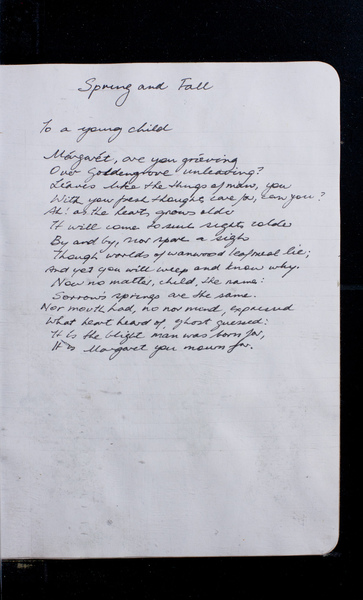 Spring and Fall
To a young child
Márgarét, are you gríeving
Over Goldengrove unleaving?
Leaves like the things of man, you
With your fresh thoughts care for, can you?
Ah! as the heart grows older
It will come to such sights colder
By and by, nor spare a sigh
Though worlds of wanwood leafmeal lie;
And yet you will weep and know why.
Now no matter, child, the name:
Sorrow's springs are the same.
Nor mouth had, no nor mind, expressed
What heart heard of, ghost guessed:
It is the blight man was born for,
It is Margaret you mourn for.